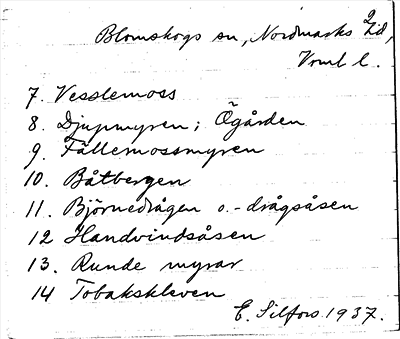 Blomskogs sn, Nordmarks hd,
2
Vrml l.
7. Vesslemoss
8. Djupmyren; Ögården
9. Fällemossmyren
10. Båtbergen
11. Björnedrågen o. -drågsåsen
12 Handvindsåsen
13. Runde myrar
14 Tobakskleven
E. Silfors 1937.